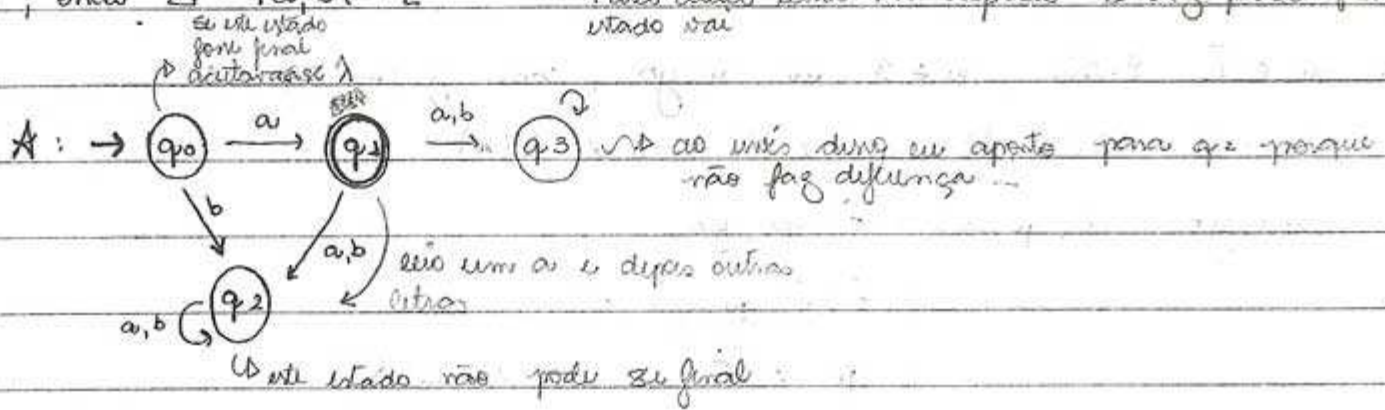 se este estado
estado vai
fosse final
aceitava-se λ
a
a,b
A: → q0 q1 q3 ao invés disso eu aponto para q2 porque
não faz diferença...
b
a,b
leio um a e depois outras
letras
q2
a,b
este estado não pode se final